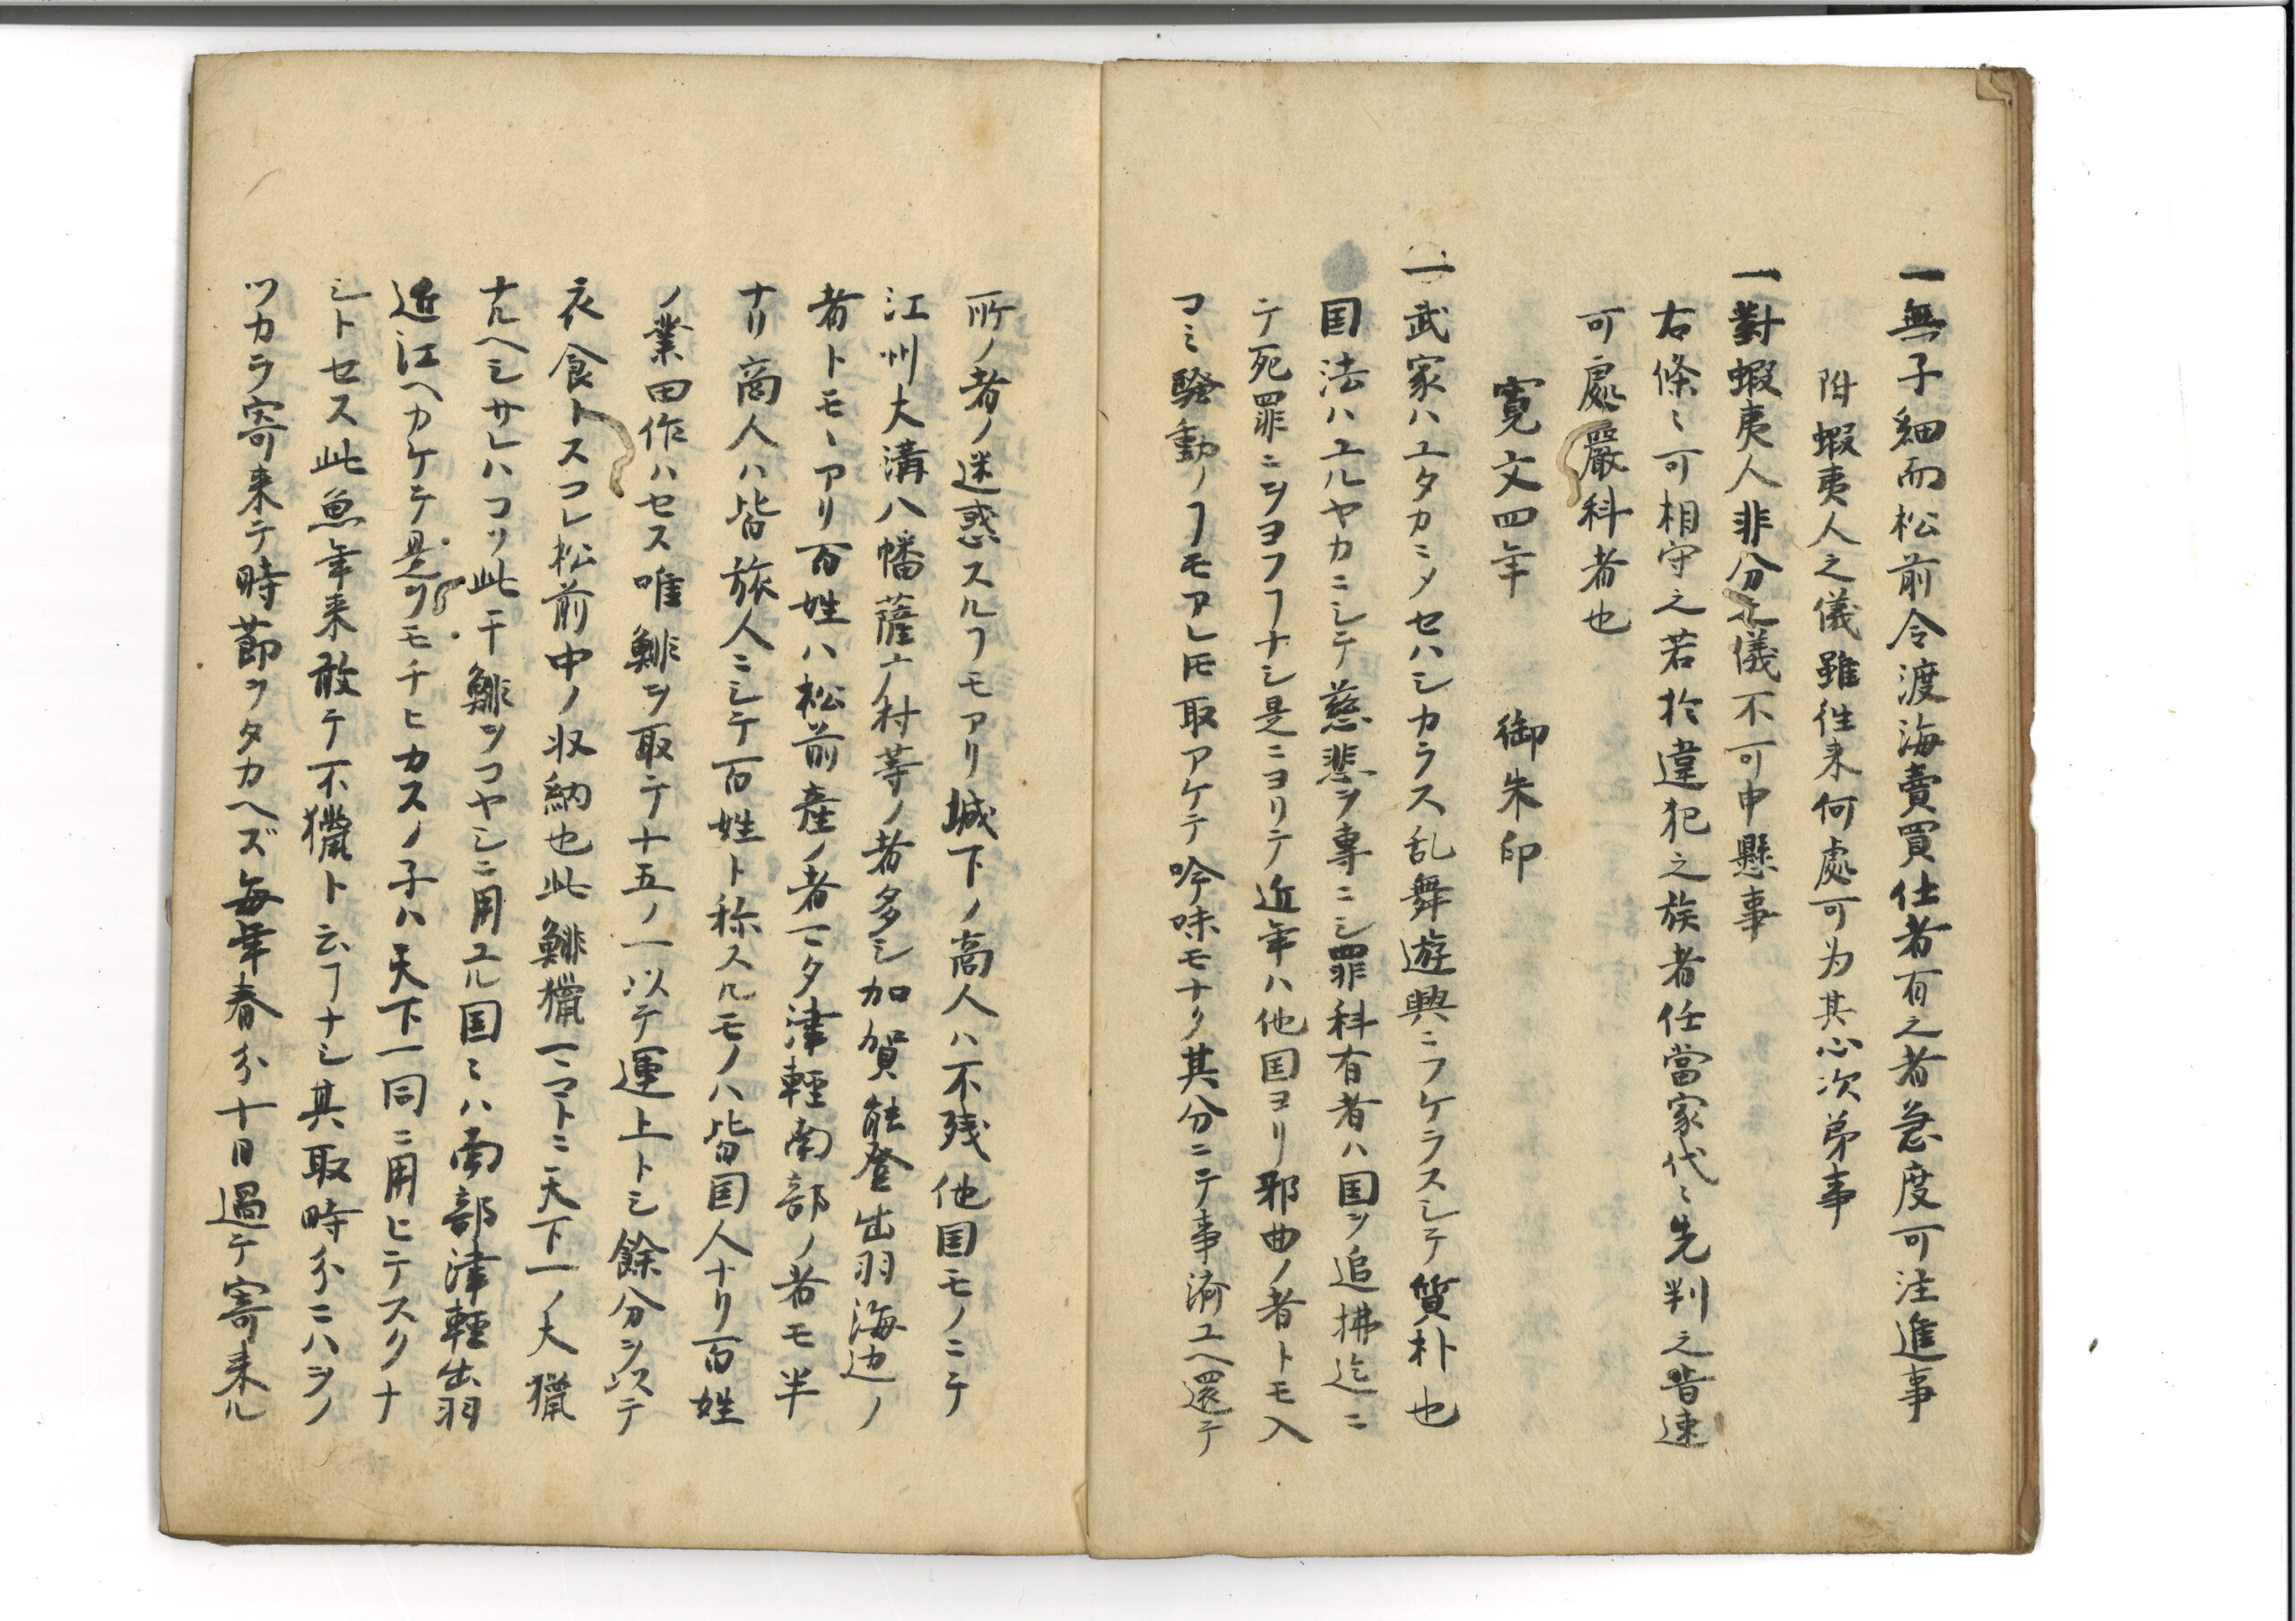 一無子細而松前令渡海賣買仕者有之者急度可注進事
附蝦夷人之儀雖徃来何處可为其心次第事
一對蝦夷人非分之儀不可申懸事
右條〻可相守之若於違犯之族者任當家代〻先判之旨速
可處嚴科者也
寛文四年　御朱印
一武家ハユタカニメセハシカラス乱舞遊興ニフケラスシテ質朴也
国法ハユルヤカニシテ慈悲ヲ専ニシ罪科有者ハ国ヲ追拂迄ニ
テ死罪ニヲヨフヿナシ是ニヨリテ近年ハ他国ヨリ邪曲ノ者トモ入
コミ騒動ノヿモアレ𪜈取アケテ吟味モナク其分ニテ事済ユヘ還テ
所ノ者ノ迷惑スルヿモアリ城下ノ商人ハ不残他国モノニテ
江州大溝八幡薩广村等ノ者多シ加賀能登出羽海辺ノ
者トモヽアリ百姓ハ松前産ノ者マタ津輕南部ノ者モ半
ナリ商人ハ皆旅人ニシテ百姓ト称スルモノハ皆国人ナリ百姓
ノ業田作ハセス唯鯡ヲ取テ十五ノ一以テ運上トシ餘分ヲ以テ
衣食トスコレ松前中ノ収納也此鯡獵マコトニ天下一ノ大獵
ナルヘシサレハコソ此干鯡ヲコヤシニ用ユル国〻ハ南部津輕出羽
近江ヘカケテ是ヲモチヒカスノ子ハ天下一同ニ用ヒテスクナ
シトセス此魚年来敢テ不獵ト云ヿナシ其取時分ニハヲノ
ツカラ寄来テ時節ヲタカヘズ毎年春分十日過テ寄来ル